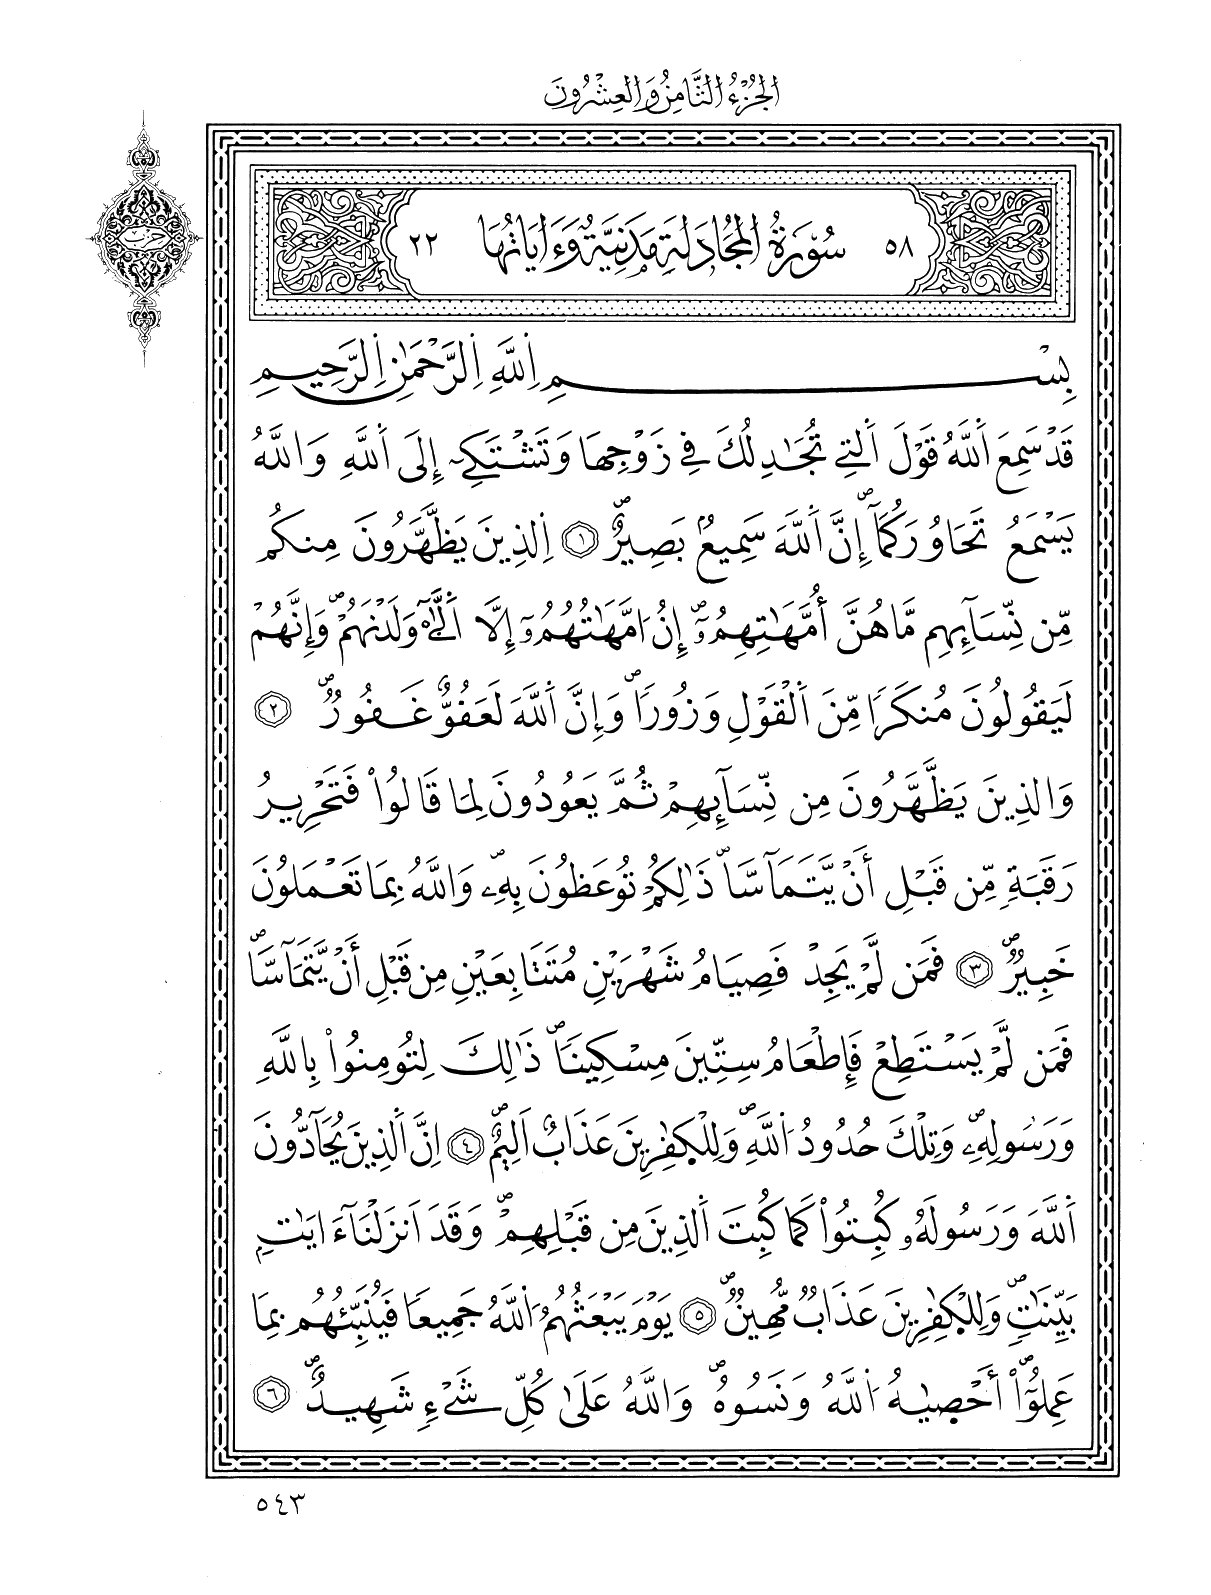 الجُزْءُ الثَّامِنُ وَالعِشْرُونَ
حزب
٥٨ سُورَةُ المُجَادَلَةِ مَدَنِيَّةٌ وَءَايَاتُهَا ٢٢
بِسْمِ اِ۬للَّهِ اِ۬لرَّحْمَٰنِ اِ۬لرَّحِيمِ
قَدْ سَمِعَ اَ۬للَّهُ قَوْلَ اَ۬لتِے تُجَٰدِلُكَ فِے زَوْجِهَا وَتَشْتَكِےٓ إِلَى اَ۬للَّهِ وَاللَّهُ
يَسْمَعُ تَحَاوُرَكُمَآۖ إِنَّ اَ۬للَّهَ سَمِيعُۢ بَصِيرٌۖ ١ اِ۬لذِينَ يَظَّهَّرُونَ مِنكُم
مِّن نِّسَآئِهِم مَّا هُنَّ أُمَّهَٰتِهِمُۥٓۖ إِنُ ا۟مَّهَٰتُهُمُۥٓ إِلَّا اَ۬لَّٰٓے وَلَدْنَهُمْۖ وَإِنَّهُمْ
لَيَقُولُونَ مُنكَراٗ مِّنَ اَ۬لْقَوْلِ وَزُوراٗۖ وَإِنَّ اَ۬للَّهَ لَعَفُوٌّ غَفُورٞۖ ٢
وَالذِينَ يَظَّهَّرُونَ مِن نِّسَآئِهِمْ ثُمَّ يَعُودُونَ لِمَا قَالُواْ فَتَحْرِيرُ
رَقَبَةٖ مِّن قَبْلِ أَنْ يَّتَمَآسَّاۖ ذَٰلِكُمْ تُوعَظُونَ بِهِۦۖ وَاللَّهُ بِمَا تَعْمَلُونَ
خَبِيرٞۖ ٣ فَمَن لَّمْ يَجِدْ فَصِيَامُ شَهْرَيْنِ مُتَتَابِعَيْنِ مِن قَبْلِ أَنْ يَّتَمَآسَّاۖ
فَمَن لَّمْ يَسْتَطِعْ فَإِطْعَامُ سِتِّينَ مِسْكِيناٗۖ ذَٰلِكَ لِتُومِنُواْ بِاللَّهِ
وَرَسُولِهِۦۖ وَتِلْكَ حُدُودُ اُ۬للَّهِۖ وَلِلْكٰ۪فِرِينَ عَذَابٌ اَلِيمٌۖ ٤ اِنَّ اَ۬لذِينَ يُحَآدُّونَ
اَ۬للَّهَ وَرَسُولَهُۥ كُبِتُواْ كَمَا كُبِتَ اَ۬لذِينَ مِن قَبْلِهِمْۖ وَقَدَ اَنزَلْنَآ ءَايَٰتِۢ
بَيِّنَٰتٖۖ وَلِلْكٰ۪فِرِينَ عَذَابٞ مُّهِينٞۖ ٥ يَوْمَ يَبْعَثُهُمُ اُ۬للَّهُ جَمِيعاٗ فَيُنَبِّئُهُم بِمَا
عَمِلُوٓاْۖ أَحْص۪يٰهُ اُ۬للَّهُ وَنَسُوهُۖ وَاللَّهُ عَلَىٰ كُلِّ شَےْءٖ شَهِيدٌۖ ٦
٥٤٣